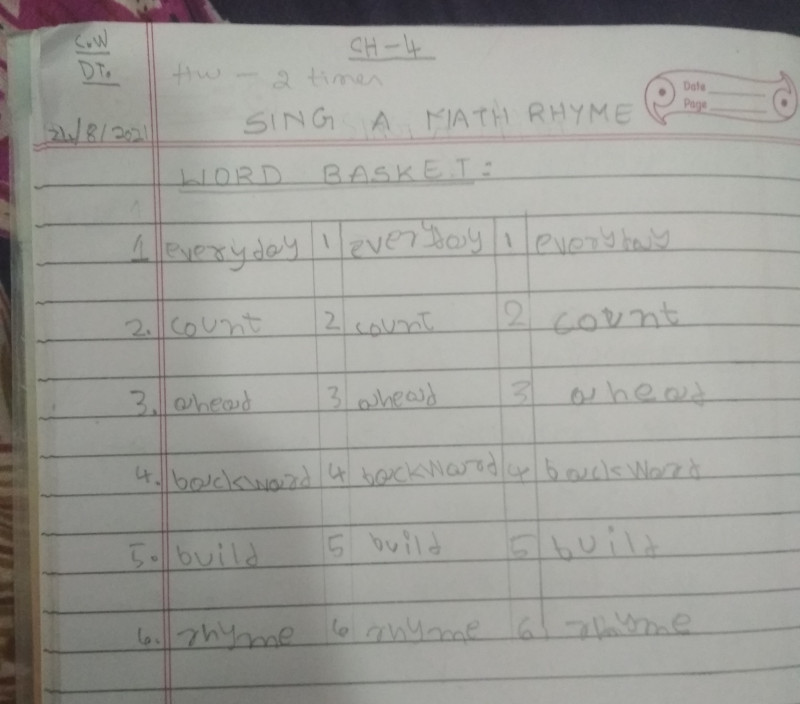 C.W
CH-4
DT.
HW - 2 times
Date
Page
SING A MATH RHYME
24/8/2021
WORD BASKET:
1 everyday 1 everyday 1 everyday
2. count 2 count 2 count
3. ahead 3 ahead 3 ahead
4. backward 4 backward 4 backward
5. build 5 build 5 build
6. rhyme 6 rhyme 6 rhyme